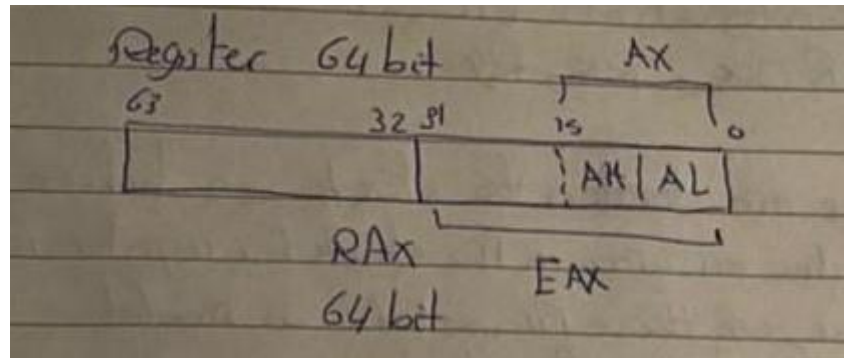 Register 64 bit
AX
63 32 31 15 0
AH AL
RAX
EAX
64 bit